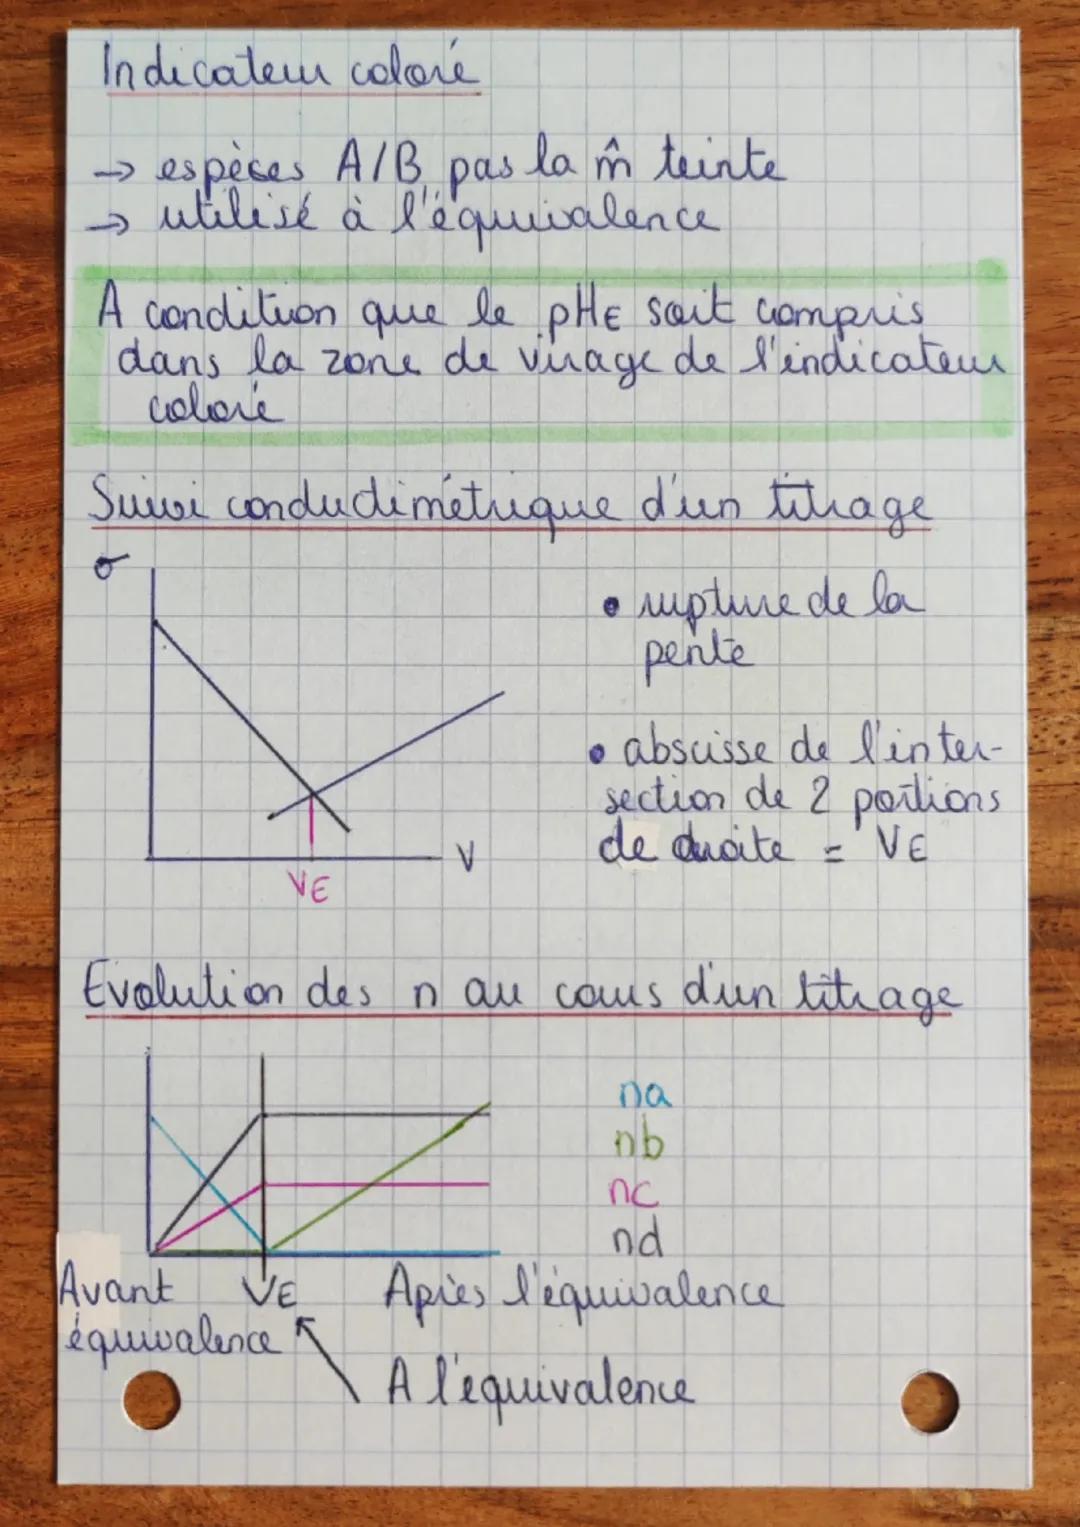 Indicateur coloré
→ espèces A/B pas la m̂ teinte
→ utilisé à l'équivalence
A condition que le pHE soit compris
dans la zone de virage de l'indicateur
coloré
Suivi conductimétrique d'un titrage
σ
• rupture de la
pente
• abscisse de l'inter-
section de 2 portions
de droite = VE
V
VE
Evolution des n au cours d'un titrage
na
nb
nc
nd
Avant
équivalence
VE
Après l'équivalence
A l'équivalence